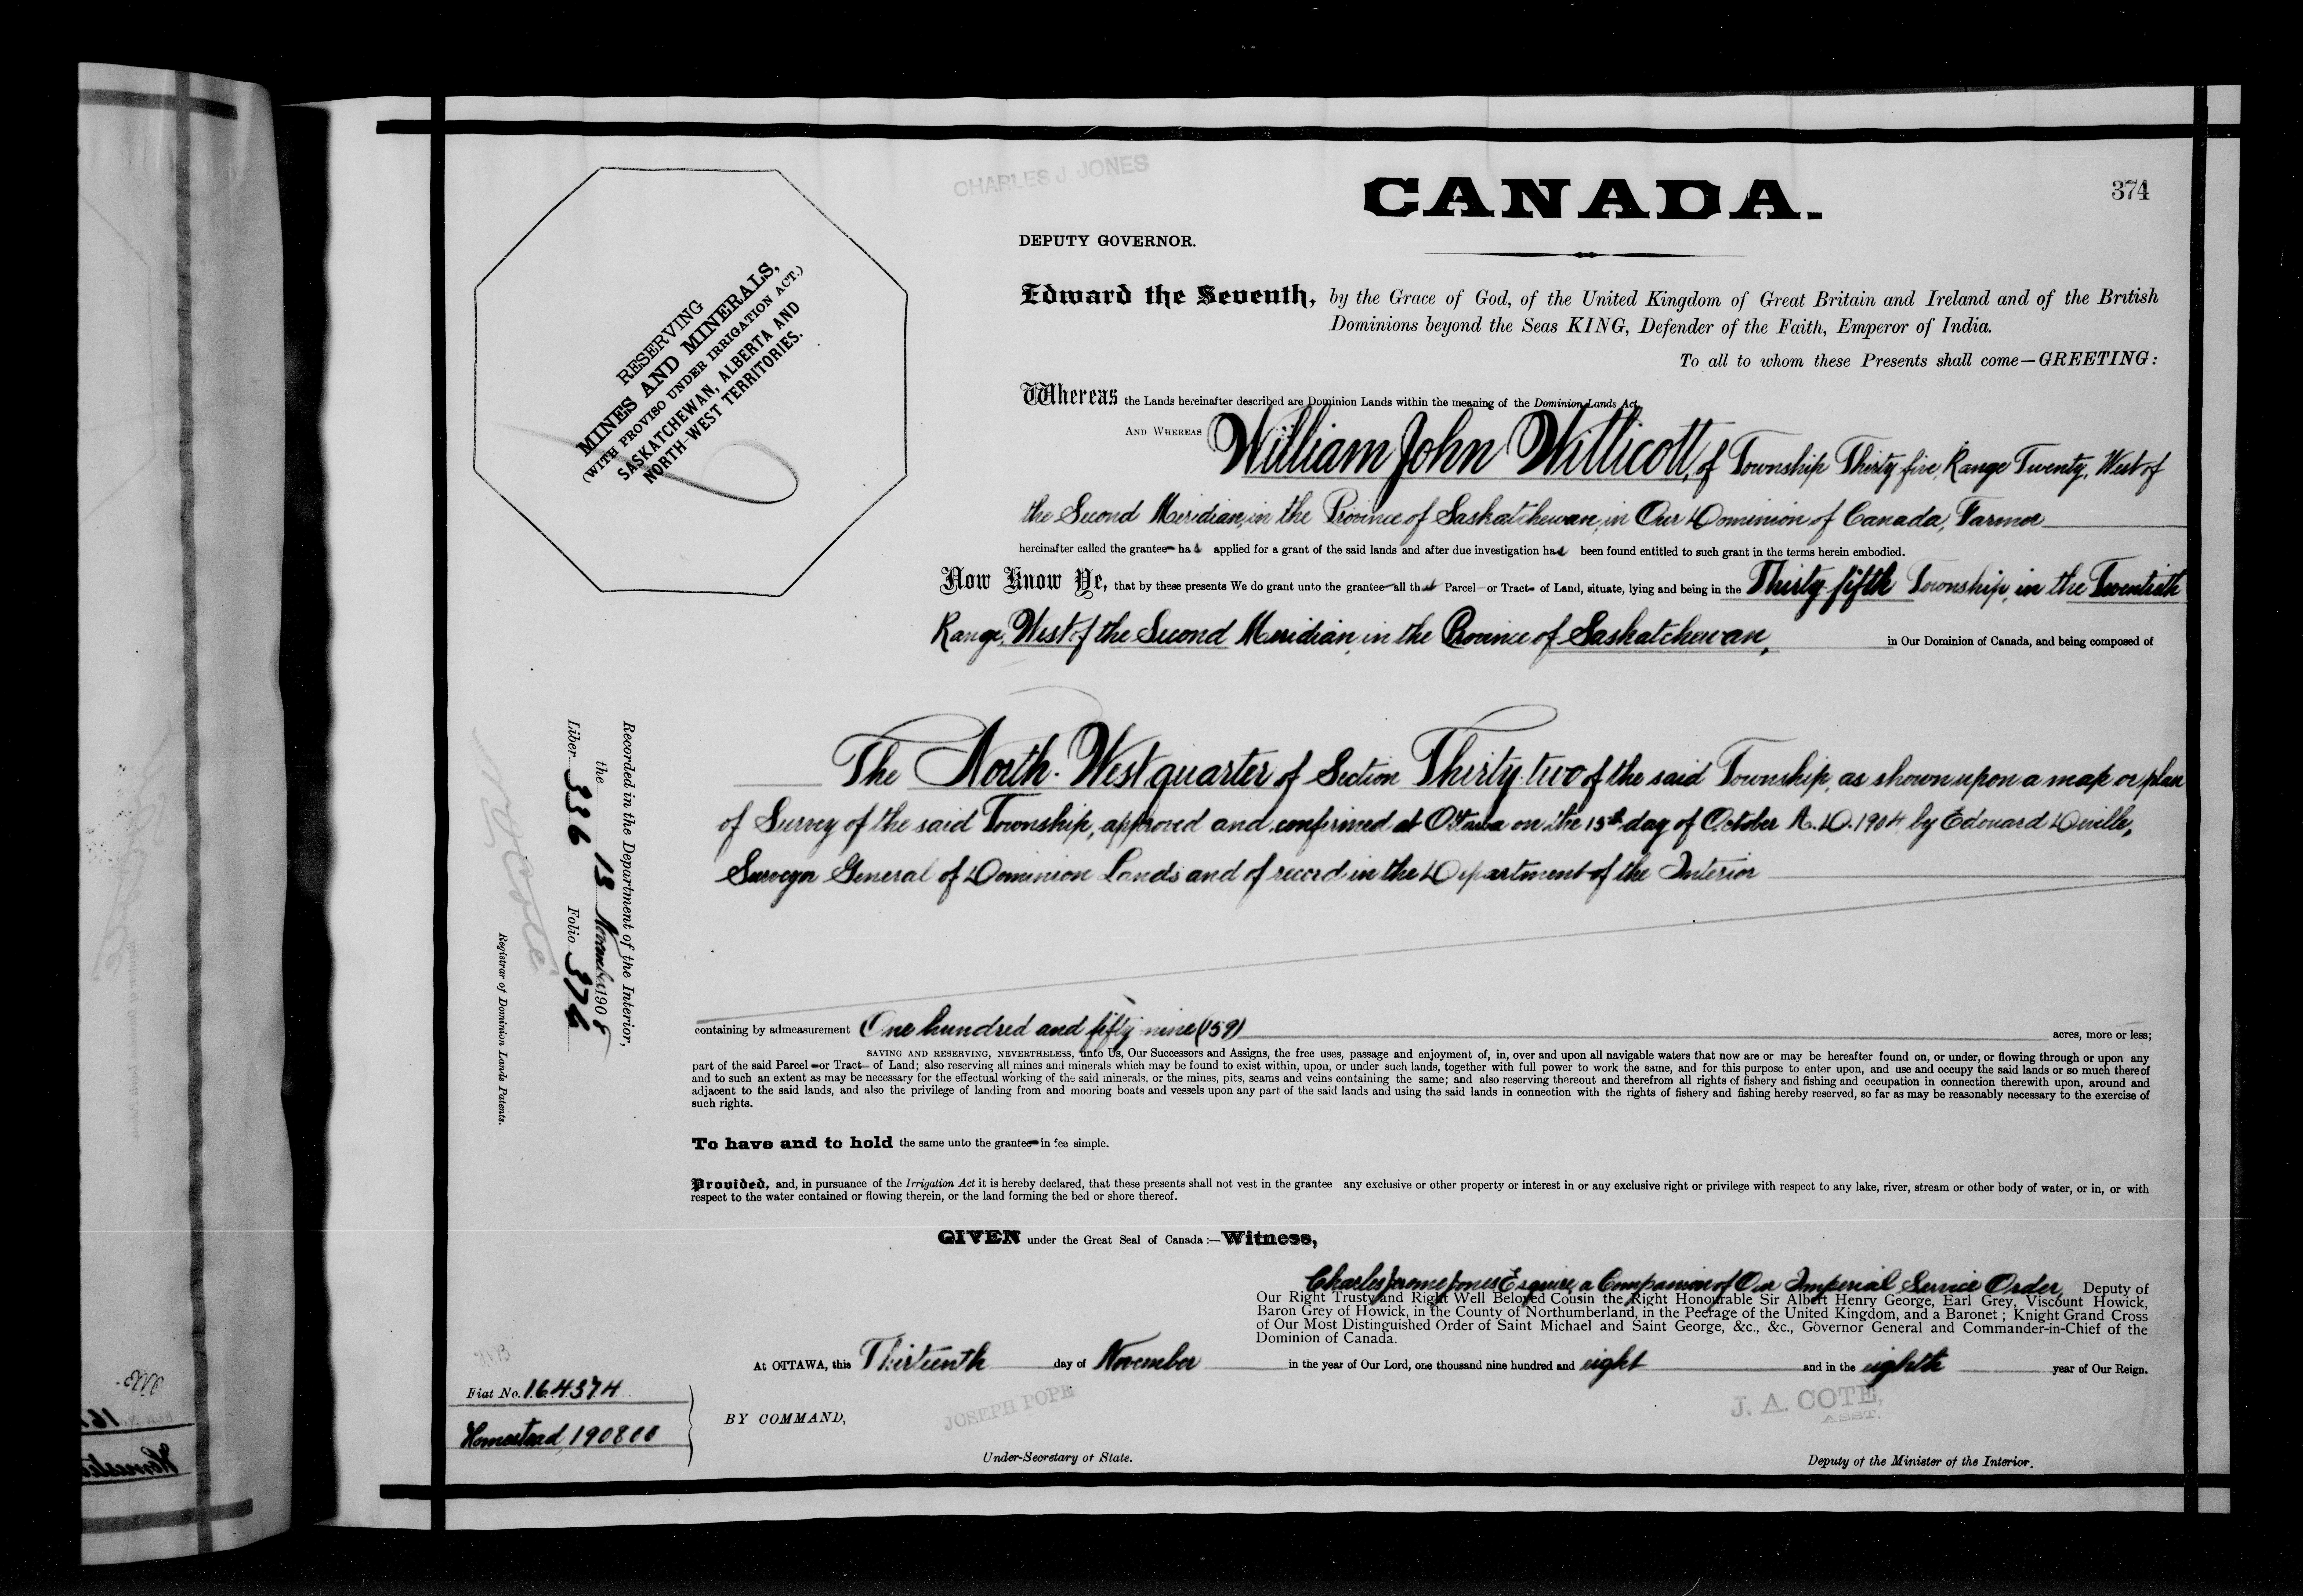 CHARLES J. JONES
CANADA.
374
DEPUTY GOVERNOR.
RESERVING
MINES AND MINERALS,
(WITH PROVISO UNDER IRRIGATION ACT.)
SASKATCHEWAN, ALBERTA AND
NORTH-WEST TERRITORIES.
Edward the Seventh, by the Grace of God, of the United Kingdom of Great Britain and Ireland and of the British
Dominions beyond the Seas KING, Defender of the Faith, Emperor of India.
To all to whom these Presents shall come—GREETING:
Whereas the Lands hereinafter described are Dominion Lands within the meaning of the Dominion Lands Act,
AND WHEREAS William John Willicott, of Township Thirty five, Range Twenty, West of
the Second Meridian, in the Province of Saskatchewan, in Our Dominion of Canada, Farmer
hereinafter called the grantee has applied for a grant of the said lands and after due investigation has been found entitled to such grant in the terms herein embodied.
Now Know Ye, that by these presents We do grant unto the grantee all that Parcel or Tract of Land, situate, lying and being in the Thirty-fifth Township, in the Twentieth
Range, West of the Second Meridian, in the Province of Saskatchewan, in Our Dominion of Canada, and being composed of
The North-West quarter of Section Thirty-two of the said Township, as shown upon a map or plan
of Survey of the said Township, approved and confirmed at Ottawa on the 15th day of October A.D. 1904, by Edouard Deville,
Surveyor General of Dominion Lands and of record in the Department of the Interior
Recorded in the Department of the Interior,
the 13 November 1908
Liber 336 Folio 374
Registrar of Dominion Lands Patents.
containing by admeasurement One hundred and fifty-nine (159) acres, more or less;
SAVING AND RESERVING, NEVERTHELESS, unto Us, Our Successors and Assigns, the free uses, passage and enjoyment of, in, over and upon all navigable waters that now are or may be hereafter found on, or under, or flowing through or upon any
part of the said Parcel or Tract of Land; also reserving all mines and minerals which may be found to exist within, upon, or under such lands, together with full power to work the same, and for this purpose to enter upon, and use and occupy the said lands or so much thereof
and to such an extent as may be necessary for the effectual working of the said minerals, or the mines, pits, seams and veins containing the same; and also reserving thereout and therefrom all rights of fishery and fishing and occupation in connection therewith upon, around and
adjacent to the said lands, and also the privilege of landing from and mooring boats and vessels upon any part of the said lands and using the said lands in connection with the rights of fishery and fishing hereby reserved, so far as may be reasonably necessary to the exercise of
such rights.
To have and to hold the same unto the grantee in fee simple.
Provided, and, in pursuance of the Irrigation Act it is hereby declared, that these presents shall not vest in the grantee any exclusive or other property or interest in or any exclusive right or privilege with respect to any lake, river, stream or other body of water, or in, or with
respect to the water contained or flowing therein, or the land forming the bed or shore thereof.
GIVEN under the Great Seal of Canada:—Witness,
Charles Jerome Jones Esquire, a Companion of Our Imperial Service Order, Deputy of
Our Right Trusty and Right Well Beloved Cousin the Right Honourable Sir Albert Henry George, Earl Grey, Viscount Howick,
Baron Grey of Howick, in the County of Northumberland, in the Peerage of the United Kingdom, and a Baronet; Knight Grand Cross
of Our Most Distinguished Order of Saint Michael and Saint George, &c., &c., Governor General and Commander-in-Chief of the
Dominion of Canada.
At OTTAWA, this Thirteenth day of November in the year of Our Lord, one thousand nine hundred and eight and in the eighth year of Our Reign.
Fiat No. 164374
Homestead 190800
BY COMMAND,
JOSEPH POPE
Under-Secretary of State.
J. A. COTE,
ASST.
Deputy of the Minister of the Interior.